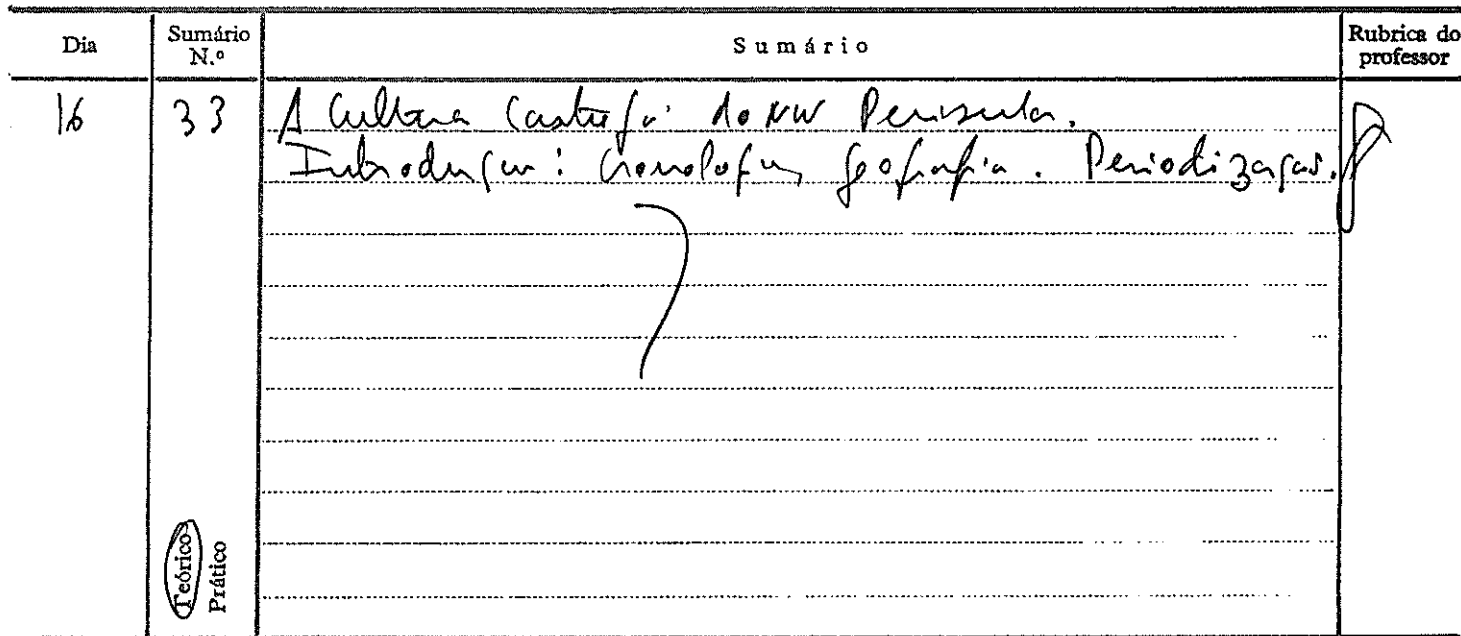 Dia
Sumário N.º
Sumário
Rubrica do professor
16
33
A Cultura Castreja do NW Peninsular.
Introdução: cronologia, geografia. Periodização.
Teórico
Prático